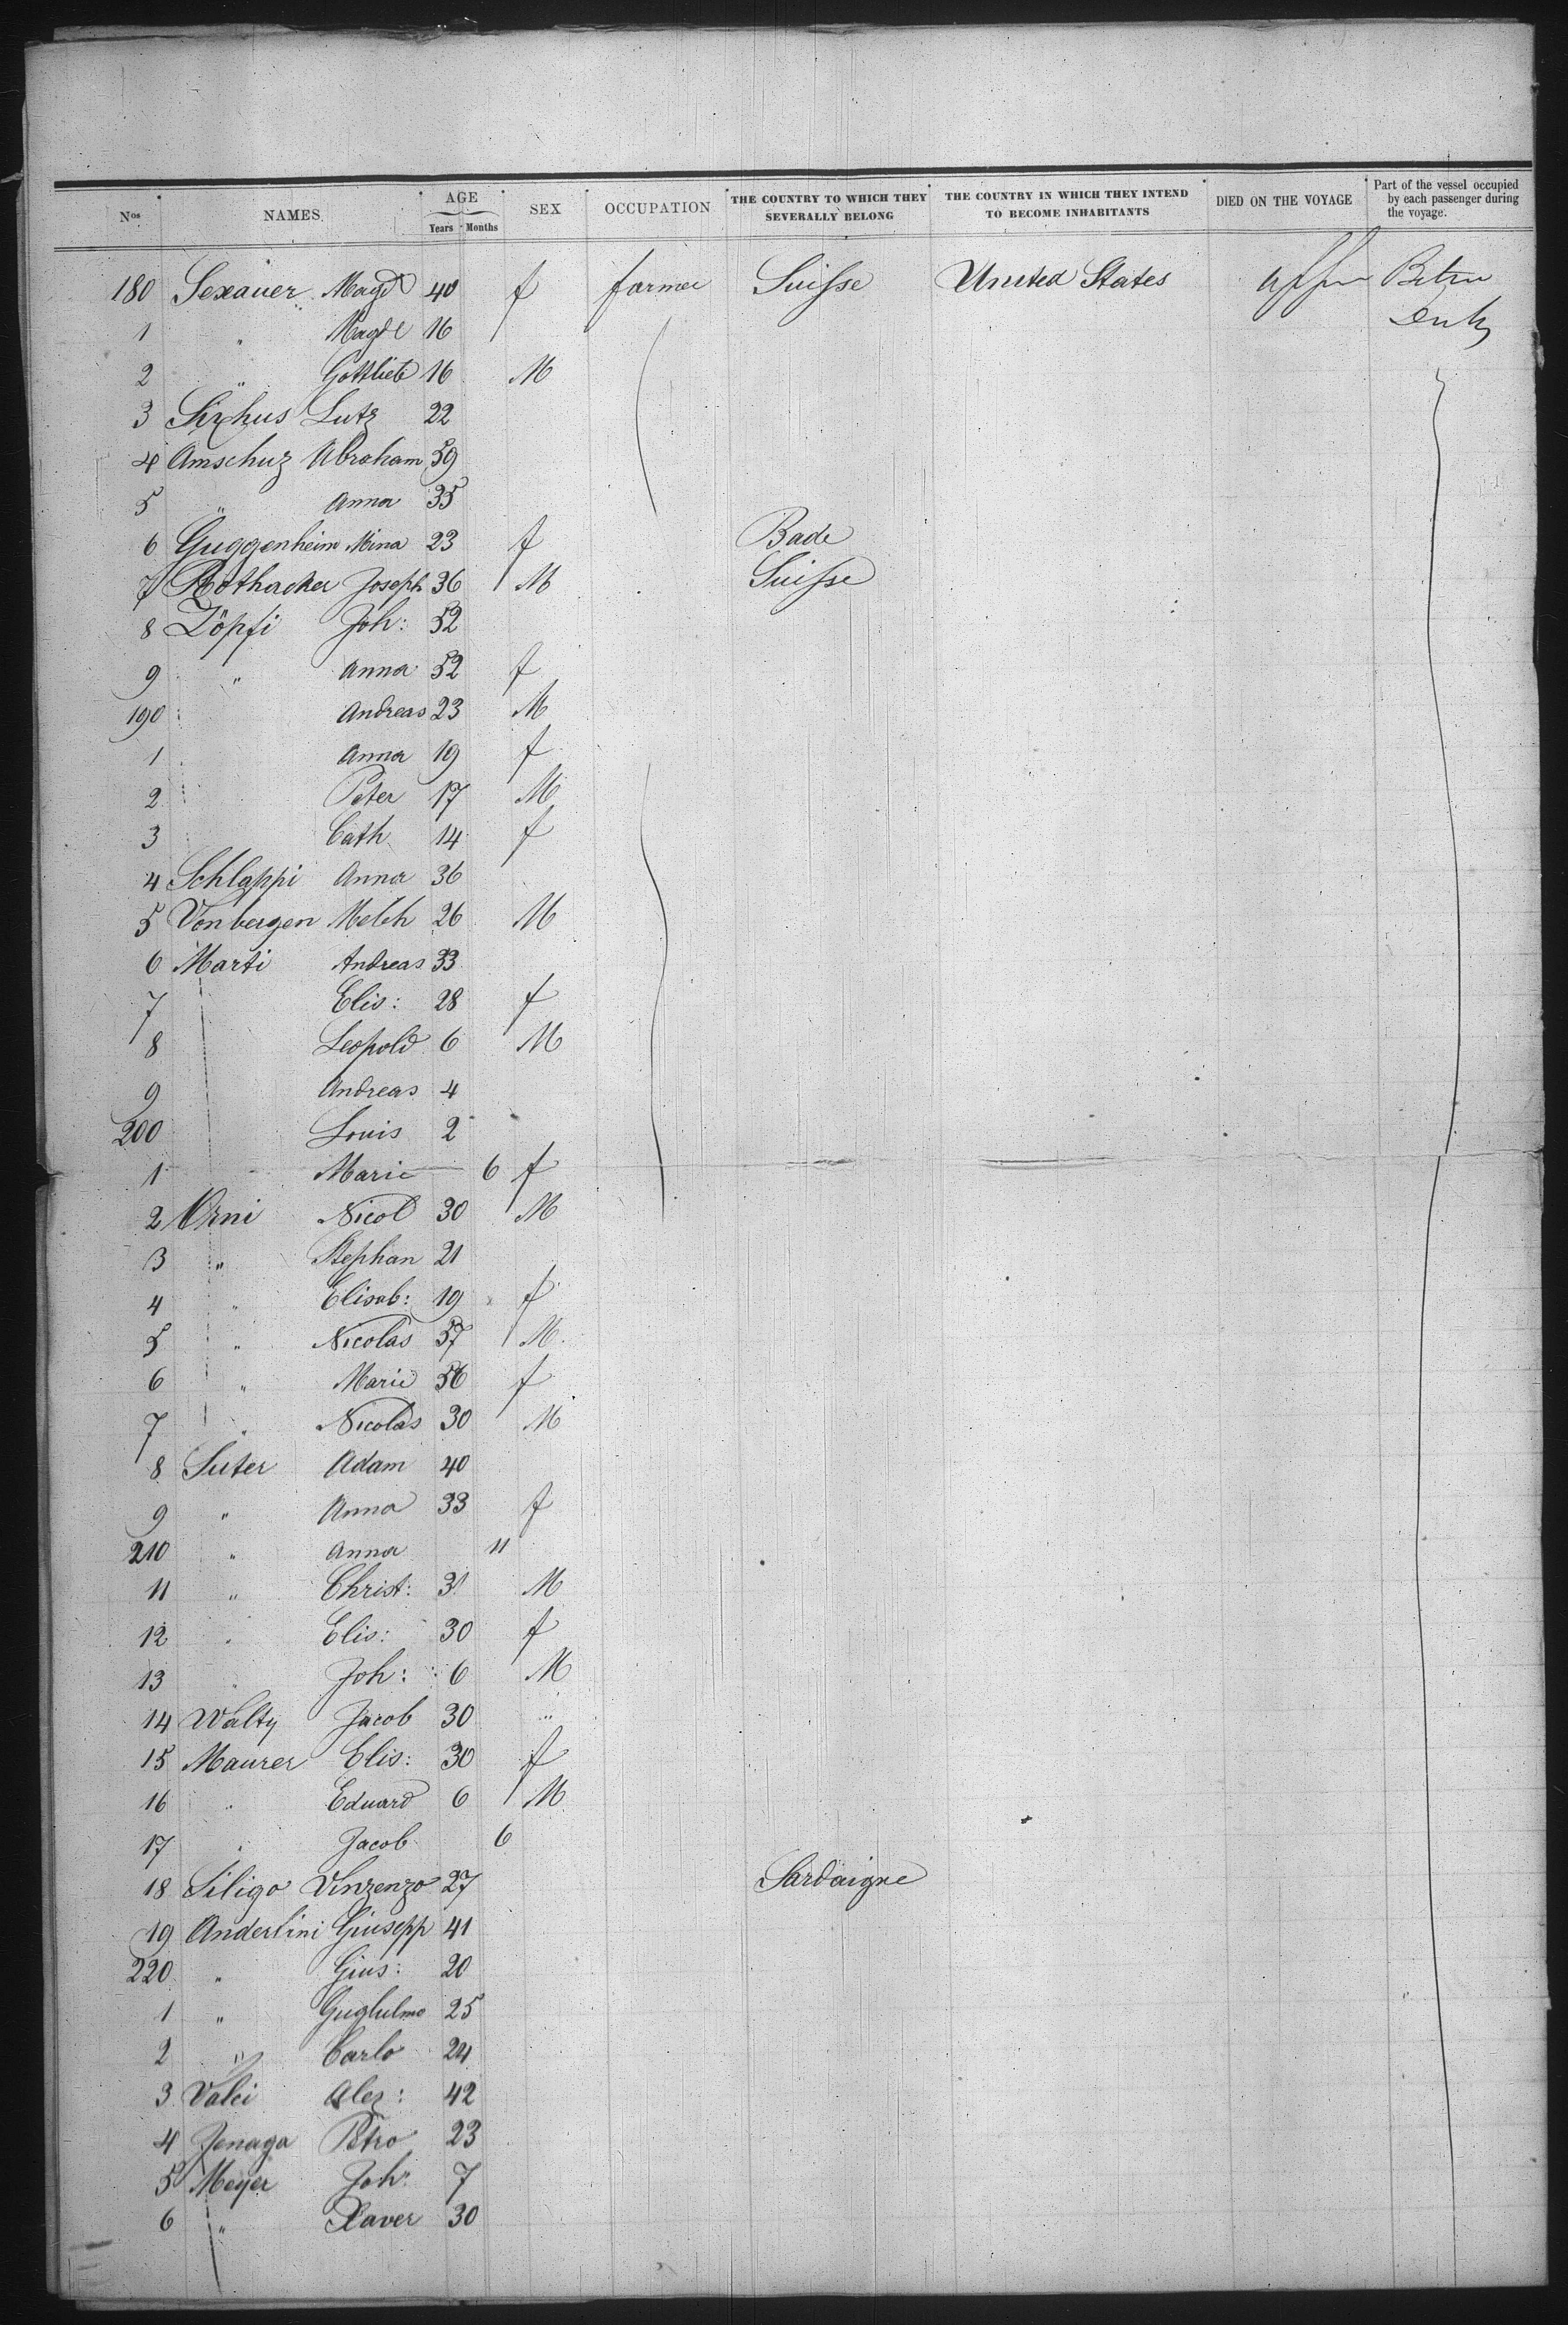 Nos NAMES. AGE Years Months SEX OCCUPATION THE COUNTRY TO WHICH THEY SEVERALLY BELONG THE COUNTRY IN WHICH THEY INTEND TO BECOME INHABITANTS DIED ON THE VOYAGE Part of the vessel occupied by each passenger during the voyage.
180 Sexauer Magd 40 f farmer Suisse United States
1 " Magde 16
2 " Gottlieb 16 M
3 Lutz 22
4 Amschuz Abraham 59
5 " Anna 35
6 Guggenheim Mina 23 f Bade
7 Rothacker Joseph 36 M Suisse
8 Zöpfi Joh: 52
9 " Anna 52 f
190 Andreas 23 M
1 Anna 19 f
2 Peter 17 M
3 Cath 14 f
4 Schlappi Anna 36
5 Vonbergen Melch 26 M
6 Marti Andreas 33
7 Elis: 28 f
8 Leopold 6 M
9 Andreas 4
200 Louis 2
1 Marie 6 f
2 Nicol 30 M
3 " Stephan 21
4 " Elisab: 19 f
5 " Nicolas 57 M
6 " Marie 56 f
7 " Nicolas 30 M
8 Suter Adam 40
9 " Anna 33 f
210 " Anna 11
11 " Christ: 31 M
12 " Elis: 30 f
13 " Joh: 6 M
14 Walty Jacob 30 "
15 Maurer Elis: 30 f
16 " Eduard 6 M
17 " Jacob 6
18 Siligo Vinzenzo 27 Sardaigne
19 Anderlini Giusepp 41
220 " Gius: 20
1 " Guglulmo 25
2 " Carlo 24
3 Valei Alez: 42
4 Jenaga Petro 23
5 Meyer Joh: 7
6 " Xaver 30